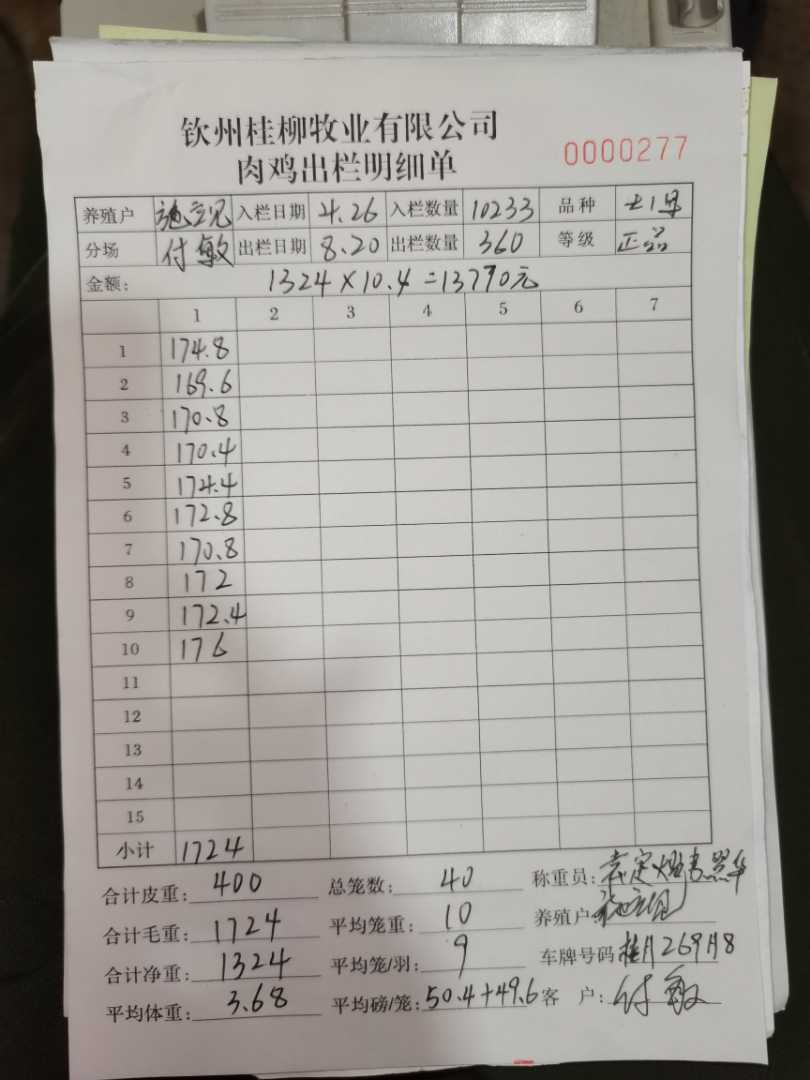 钦州桂柳牧业有限公司
肉鸡出栏明细单
0000277
养殖户 入栏日期 4.26 入栏数量 10233 品种 土1号
分场 付敏 出栏日期 8.20 出栏数量 360 等级 正品
金额: 1324×10.4=13770元
1 2 3 4 5 6 7
1 174.8
2 169.6
3 170.8
4 170.4
5 174.4
6 172.8
7 170.8
8 172
9 172.4
10 176
11
12
13
14
15
小计 1724
合计皮重: 400 总笼数: 40 称重员:
合计毛重: 1724 平均笼重: 10 养殖户:
合计净重: 1324 平均笼/羽: 9 车牌号码
平均体重: 3.68 平均磅/笼: 50.4+49.6 客 户: 付敏